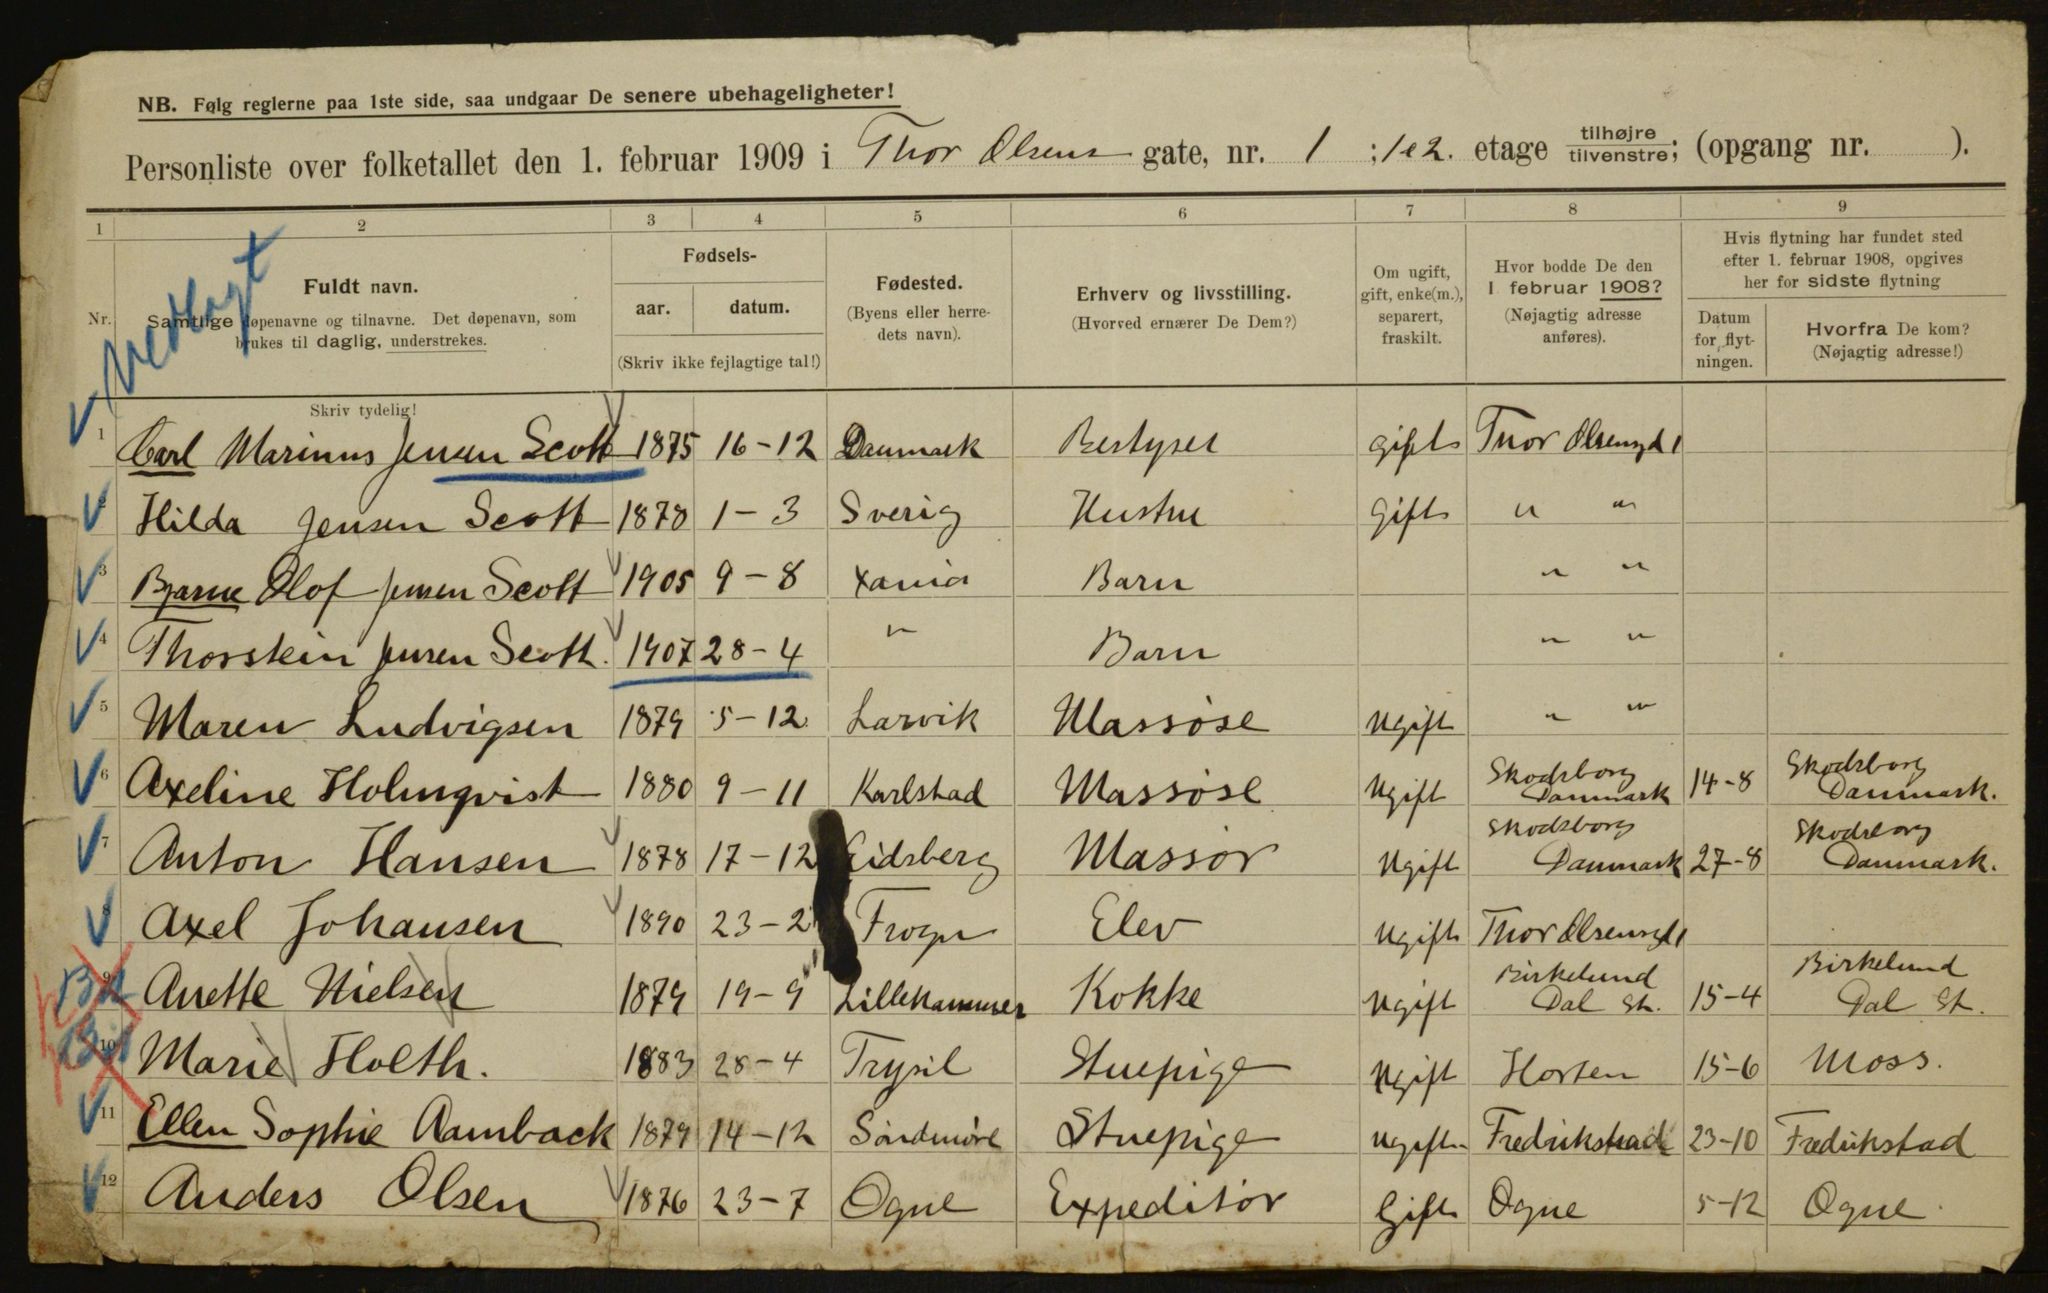 NB. Følg reglerne paa 1ste side, saa undgaar De senere ubehageligheter!
Personliste over folketallet den 1. februar 1909 i Thor Olsens gate, nr. 1 ; 1 e 2. etage tilhøjre tilvenstre; (opgang nr. ).
1 2 3 4 5 6 7 8 9
Nr.
Fuldt navn.
Samtlige døpenavne og tilnavne. Det døpenavn, som
brukes til daglig, understrekes.
Skriv tydelig!
Fødsels-
aar. datum.
(Skriv ikke fejlagtige tal!)
Fødested.
(Byens eller herre-
dets navn).
Erhverv og livsstilling.
(Hvorved ernærer De Dem?)
Om ugift,
gift, enke(m.),
separert,
fraskilt.
Hvor bodde De den
1 februar 1908?
(Nøjagtig adresse
anføres).
Hvis flytning har fundet sted
efter 1. februar 1908, opgives
her for sidste flytning
Datum
for flyt-
ningen.
Hvorfra De kom?
(Nøjagtig adresse!)
Vedlagt
1 Carl Marinus Jensen Scott 1875 16-12 Danmark Bestyrer gift Thor Olsensgd 1
2 Hilda Jensen Scott 1878 1-3 Sverig Hustru Gift " "
3 Bjarne Olof Jensen Scott 1905 9-8 Xania Barn " "
4 Thorstein Jensen Scott. 1907 28-4 " Barn " "
5 Maren Ludvigsen 1879 5-12 Larvik Massøse Ugift " "
6 Axeline Holmqvist 1880 9-11 Karlstad Massøse Ugift Skodsborg Danmark 14-8 Skodsborg Danmark.
7 Anton Hansen 1878 17-12 Eidsberg Massør Ugift Skodsborg Danmark 27-8 Skodsborg Danmark.
8 Axel Johansen 1890 23-2 Frogn Elev Ugift Thor Olsensgd 1
9 Anette Nielsen 1879 19-9 Lillehammer Kokke Ugift Birkelund Dal St. 15-4 Birkelund Dal St.
10 Marie Holth. 1883 28-4 Trysil Stuepige Ugift Horten 15-6 Moss.
11 Ellen Sophie Aamback 1879 14-12 Søndmøre Stuepige Ugift Fredrikstad 23-10 Fredrikstad
12 Anders Olsen 1876 23-7 Ogne Expeditør Gift Ogne 5-12 Ogne